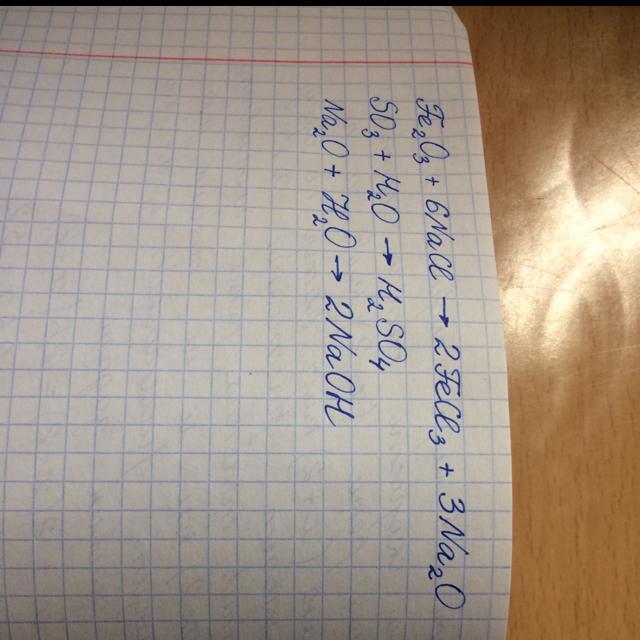 Fe₂O₃ + 6NaCl → 2FeCl₃ + 3Na₂O
SO₃ + H₂O → H₂SO₄
Na₂O + H₂O → 2NaOH